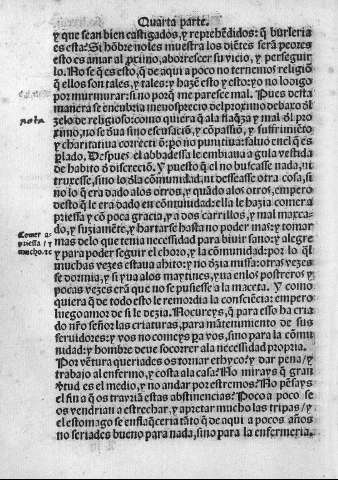 Quarta parte.
y que sean bien castigados, y reprehẽdidos: q̃ burleria
es esta? Si hõbre no les muestra los diẽtes serã peores
esto es amar al p̃ximo, aborrescer su vicio, y perseguir
lo. No se q̃ es esto, q̃ de aqui a poco no ternemos religiõ
q̃ ellos son tales, y tales: y hazẽ esto y esto: yo no lo digo
por murmurar: sino porq̃ me paresce mal. Pues desta
manera se encubria menosprecio del proximo debaxo ðl
nota
zelo de religioso: como quiera q̃ a la flaq̃za y mal ðl pro
ximo, no se ðuia sino escusaciõ, y cõpassiõ, y sufrimiẽto
y charitatiua correctiõ: y no punitiua: saluo en el q̃ es
perlado. Despues el abbadessa le embiaua a gula vestida
de habito ð discreciõ. Y puesto q̃ el no buscasse nada, ni
truxesse, sino lo ðla comunidad: ni desseasse otra cosa, si
no lo q̃ era dado a los otros, y quãdo a los otros, empero
desto q̃ le era dado en cõmunidad: ella le hazia comer a
Comer a
priessa / y
mucho. tc
priessa y cõ poca gracia, a dos carrillos, y mal marca-
do, y suziamẽte, y hartarse hasta no poder mas: y tomar
mas delo que tenia necessidad para biuir sano: y alegre
y para poder seguir el choro, y la cõmunidad: por lo q̃l
muchas vezes estaua ahito: y no ðzia missa: otras vezes
se dormia, y si yua alos maytines, yua enlos postreros y
pocas vezes era que no se pusiesse a la maceta. Y como
quiera q̃ de todo esto le remordia la consciẽcia: empero
luego amor de si le dezia. No cureys, q̃ para esso ha cria
do nr̃o señor las criaturas, para mãtenimiento de sus
seruidores: y vos no comeys pa vos, sino para la cõmu
nidad: y hombre deue socorrer ala necessidad propria.
Por vẽtura queriades os tornar ethyco? y dar pena / y
trabajo al enfermo, y costa ala casa? No mirays q̃ gran
ꝟtud es el medio, y no andar por estremos? No pẽsays
el fin a q̃ os trayriã estas abstinencias? Poco a poco se
os vendrian a estrechar, y apretar mucho las tripas / y
el estomago se enflaq̃ceria tãto q̃ de aqui a pocos años
no seriades bueno para nada, sino para la enfermeria.